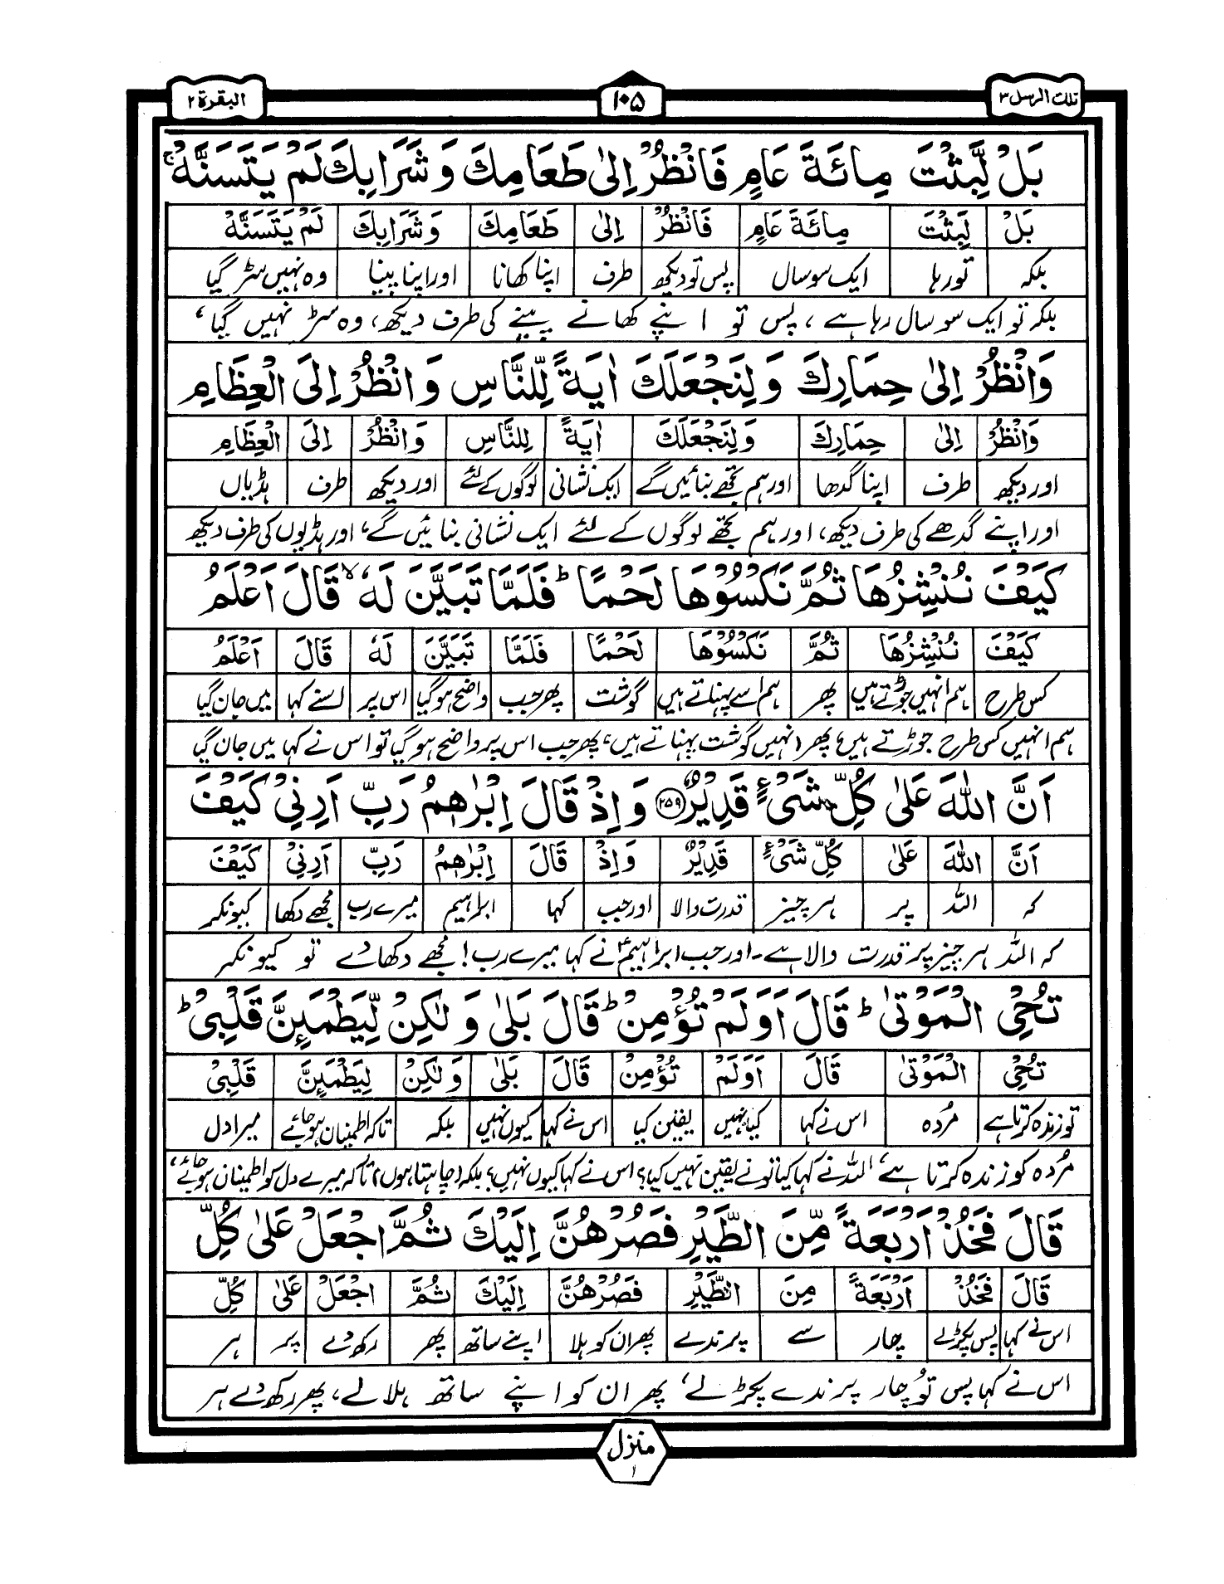 تلك الرسل ٣
١٠٥
البقرة ٢
بَلْ لَّبِثْتَ مِائَةَ عَامٍ فَانْظُرْ اِلٰى طَعَامِكَ وَشَرَابِكَ لَمْ يَتَسَنَّهْ ۚ
بَلْ لَّبِثْتَ مِائَةَ عَامٍ فَانْظُرْ اِلٰى طَعَامِكَ وَشَرَابِكَ لَمْ يَتَسَنَّهْ
بلکہ تو رہا ایک سو سال پس تو دیکھ طرف اپنا کھانا اور اپنا پینا وہ نہیں سڑ گیا
بلکہ تو ایک سو سال رہا ہے، پس تو اپنے کھانے پینے کی طرف دیکھ، وہ سڑ نہیں گیا،
وَانْظُرْ اِلٰى حِمَارِكَ وَلِنَجْعَلَكَ اٰيَةً لِّلنَّاسِ وَانْظُرْ اِلَى الْعِظَامِ
وَانْظُرْ اِلٰى حِمَارِكَ وَلِنَجْعَلَكَ اٰيَةً لِّلنَّاسِ وَانْظُرْ اِلَى الْعِظَامِ
اور دیکھ طرف اپنا گدھا اور ہم تجھے بنائیں گے ایک نشانی لوگوں کے لئے اور دیکھ طرف ہڈیاں
اور اپنے گدھے کی طرف دیکھ، اور ہم تجھے لوگوں کے لئے ایک نشانی بنائیں گے، اور ہڈیوں کی طرف دیکھ
كَيْفَ نُنْشِزُهَا ثُمَّ نَكْسُوْهَا لَحْمًا ۭ فَلَمَّا تَبَيَّنَ لَهٗ ۙ قَالَ اَعْلَمُ
كَيْفَ نُنْشِزُهَا ثُمَّ نَكْسُوْهَا لَحْمًا فَلَمَّا تَبَيَّنَ لَهٗ قَالَ اَعْلَمُ
کس طرح ہم انہیں جوڑتے ہیں پھر ہم اسے پہناتے ہیں گوشت پھر جب واضح ہو گیا اس پر اسنے کہا میں جان گیا
ہم انہیں کس طرح جوڑتے ہیں، پھر (انہیں گوشت پہناتے ہیں، پھر جب اس پر واضح ہو گیا تو اس نے کہا میں جان گیا
اَنَّ اللّٰهَ عَلٰى كُلِّ شَيْءٍ قَدِيْرٌ ۝٢٥٩ وَاِذْ قَالَ اِبْرٰهٖمُ رَبِّ اَرِنِيْ كَيْفَ
اَنَّ اللّٰهَ عَلٰى كُلِّ شَيْءٍ قَدِيْرٌ وَاِذْ قَالَ اِبْرٰهٖمُ رَبِّ اَرِنِيْ كَيْفَ
کہ اللہ پر ہر چیز قدرت والا اور جب کہا ابراہیم میرے رب مجھے دکھا کیونکر
کہ اللہ ہر چیز پر قدرت والا ہے۔ اور جب ابراہیمؑ نے کہا میرے رب! مجھے دکھا دے تو کیونکر
تُحْيِ الْمَوْتٰى ۭ قَالَ اَوَلَمْ تُؤْمِنْ ۭ قَالَ بَلٰى وَلٰكِنْ لِّيَطْمَىِٕنَّ قَلْبِيْ ۭ
تُحْيِ الْمَوْتٰى قَالَ اَوَلَمْ تُؤْمِنْ قَالَ بَلٰى وَلٰكِنْ لِّيَطْمَىِٕنَّ قَلْبِيْ
تو زندہ کرتا ہے مُردہ اس نے کہا کیا نہیں یقین کیا اس نے کہا کیوں نہیں بلکہ تاکہ اطمینان ہو جائے میرا دل
مُردہ کو زندہ کرتا ہے، اللہ نے کہا کیا تو نے یقین نہیں کیا؟ اس نے کہا کیوں نہیں؟ بلکہ (چاہتا ہوں) تاکہ میرے دل کو اطمینان ہو جائے،
قَالَ فَخُذْ اَرْبَعَةً مِّنَ الطَّيْرِ فَصُرْهُنَّ اِلَيْكَ ثُمَّ اجْعَلْ عَلٰى كُلِّ
قَالَ فَخُذْ اَرْبَعَةً مِنَ الطَّيْرِ فَصُرْهُنَّ اِلَيْكَ ثُمَّ اجْعَلْ عَلٰى كُلِّ
اس نے کہا پس پکڑ لے چار سے پرندے پھر ان کو ہلا اپنے ساتھ پھر رکھ دے پر ہر
اس نے کہا پس تُو چار پرندے پکڑ لے، پھر ان کو اپنے ساتھ ہلا لے، پھر رکھ دے ہر
منزل
١